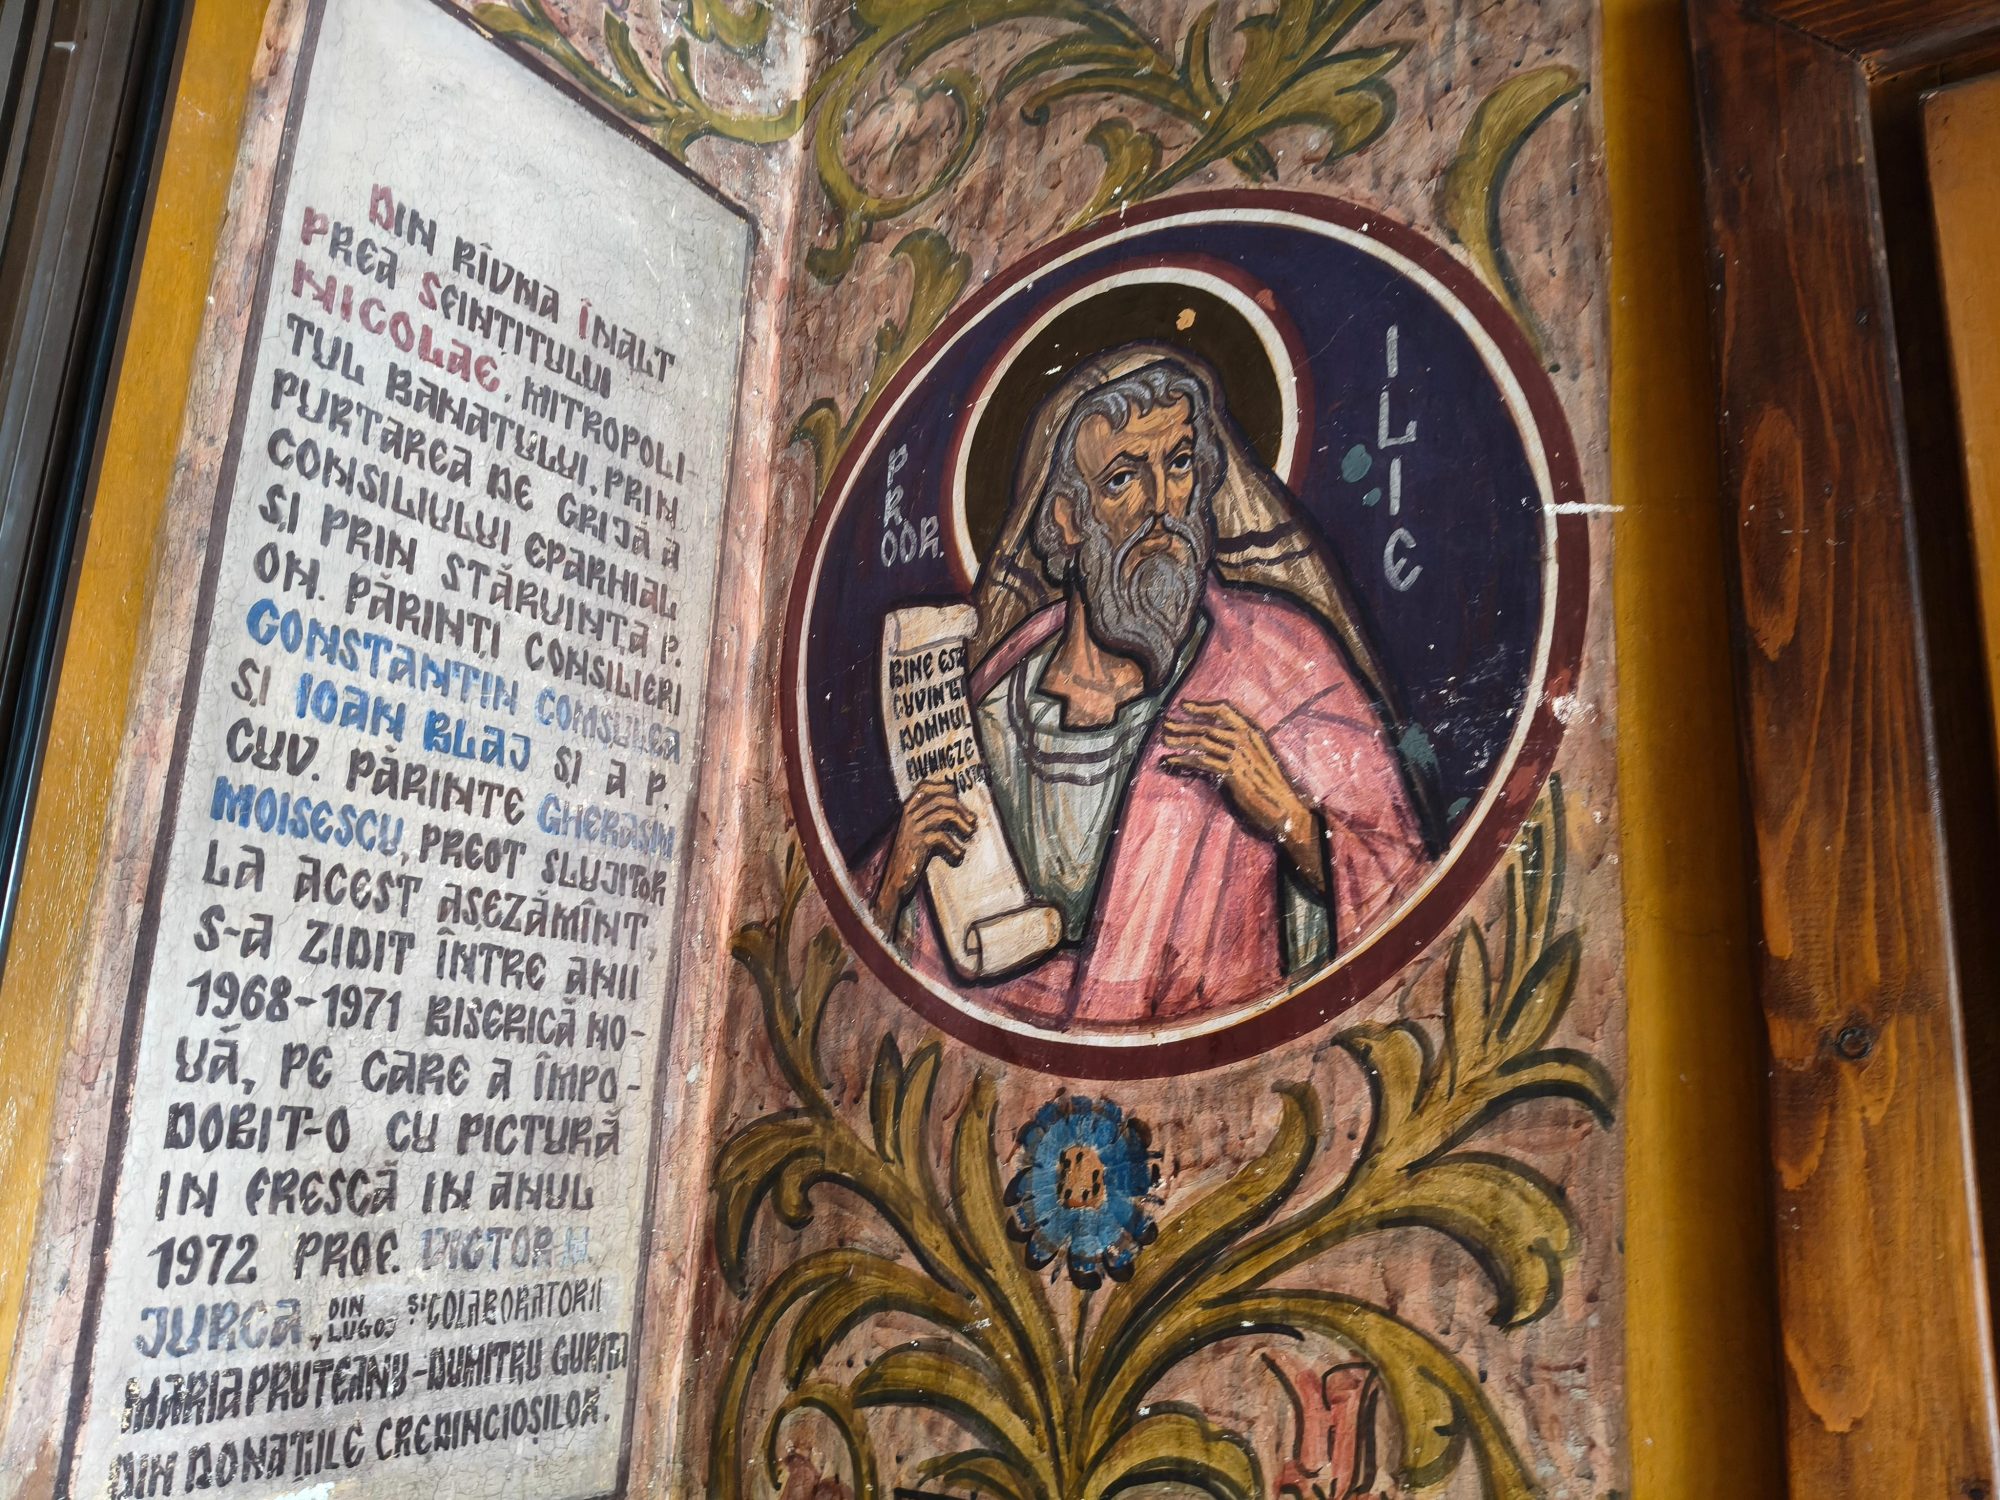 DIN RÎVNA ÎNALT
PREA SFINTITULUI
NICOLAE, MITROPOLI-
TUL BANATULUI, PRIN
PURTAREA DE GRIJĂ A
CONSILIULUI EPARHIAL
ȘI PRIN STĂRUINȚA P.
ON. PĂRINȚI CONSILIERI
CONSTANTIN
ȘI IOAN BLAJ ȘI A P.
CUV. PĂRINTE GHERASIM
MOISESCU, PREOT SLUJITOR
LA ACEST AȘEZĂMÎNT,
S-A ZIDIT ÎNTRE ANII
1968-1971 BISERICĂ NO-
UĂ, PE CARE A ÎMPO-
DOBIT-O CU PICTURĂ
IN FRESCĂ IN ANUL
1972 PROF. VICTOR
JURCA, DIN LUGOJ ȘI COLABORATORII
MARIA PRUTEANU-DUMITRU GURIȚA
DIN DONATIILE CREDINCIOȘILOR.
PROOR.
ILIE
BINE ESTE
CUVINTUL
DOMNUL